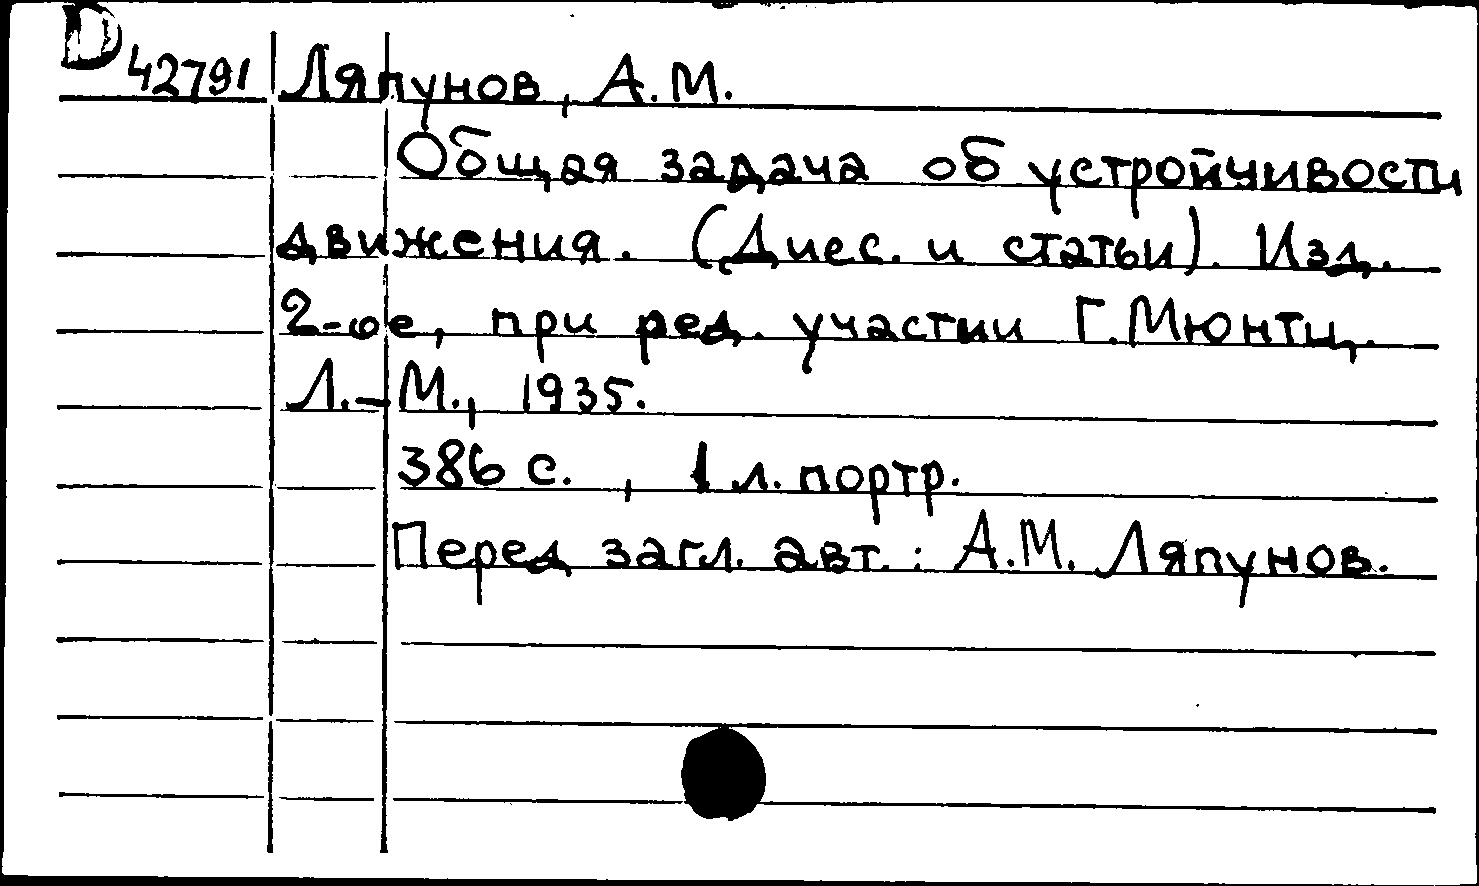 D 42791 Ляпунов, А.М.
Общая задача об устройчивости
движения. (Дисс. и статьи). Изд.
2-ое, при ред. участии Г. Мюнтц.
Л.-М., 1935.
386 с., 1 л. портр.
Перед загл. авт.: А.М. Ляпунов.